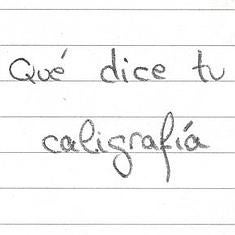 Qué dice tu
caligrafía